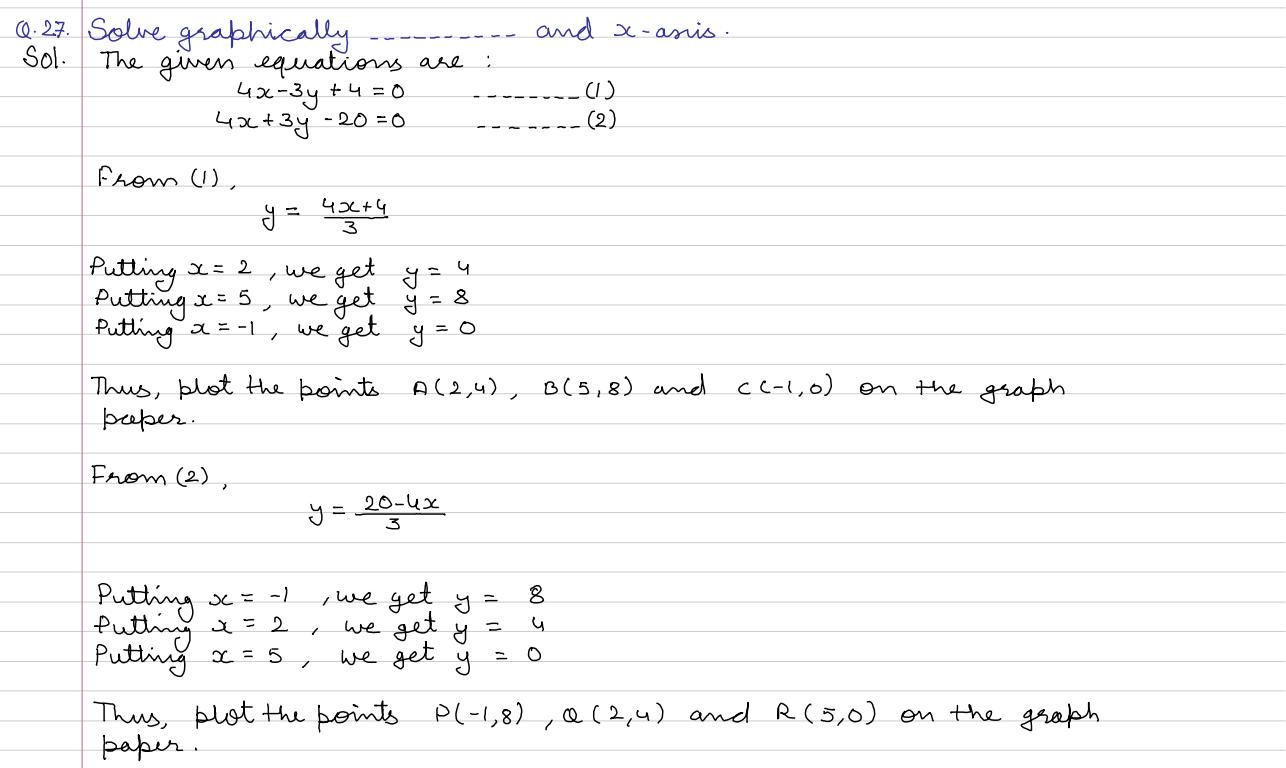 Q.27. Solve graphically ---------- and x-axis.
Sol. The given equations are :
4x-3y+4=0 --------(1)
4x+3y-20=0 -------(2)
From (1),
y = 4x+4/3
Putting x = 2, we get y = 4
Putting x = 5, we get y = 8
Putting x = -1, we get y = 0
Thus, plot the points A(2,4), B(5,8) and C(-1,0) on the graph
paper.
From (2),
y = 20-4x/3
Putting x = -1, we get y = 8
Putting x = 2, we get y = 4
Putting x = 5, we get y = 0
Thus, plot the points P(-1,8), Q(2,4) and R(5,0) on the graph
paper.